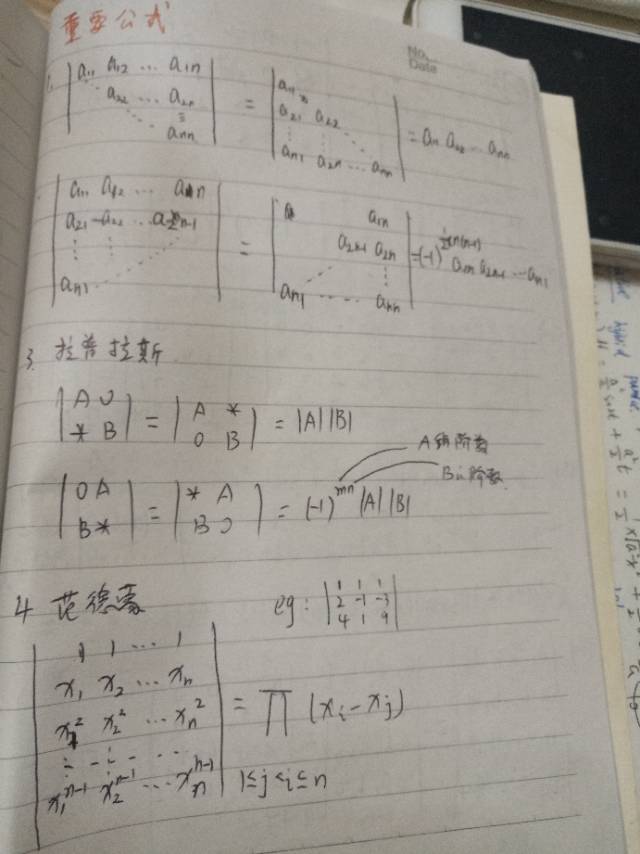 重要公式
No.
Date
1. | a₁₁ a₁₂ … a₁ₙ |
| a₂₂ … a₂ₙ |
| ⋱ ⋮ |
| aₙₙ |
= | a₁₁ |
| a₂₁ a₂₂ |
| ⋮ ⋮ ⋱ |
| aₙ₁ a₂ₙ … aₙₙ |
= a₁₁ a₂₂ … aₙₙ
| a₁₁ a₁₂ … a₁ₙ |
| a₂₁ a₂₂ … a₂ₙ₋₁ |
| ⋮ ⋮ |
| aₙ₁ |
= | a₁ₙ |
| a₂ₙ₋₁ a₂ₙ |
| ⋮ |
| aₙ₁ … aₙₙ |
= (-1)^(½n(n-1)) a₁ₙ a₂ₙ₋₁ … aₙ₁
3. 拉普拉斯
| A 0 | = | A * | = |A||B|
| * B | | 0 B |
A的阶数
B的阶数
| 0 A | = | * A | = (-1)^(mn) |A||B|
| B * | | B 0 |
4 范德蒙
eg: | 1 1 1 |
| 2 -1 -3 |
| 4 1 9 |
| 1 1 … 1 |
| x₁ x₂ … xₙ |
| x₁² x₂² … xₙ² |
| ⋮ ⋮ … |
| x₁ⁿ⁻¹ x₂ⁿ⁻¹ … xₙⁿ⁻¹ |
= ∏ (xᵢ - xⱼ)
1≤j<i≤n